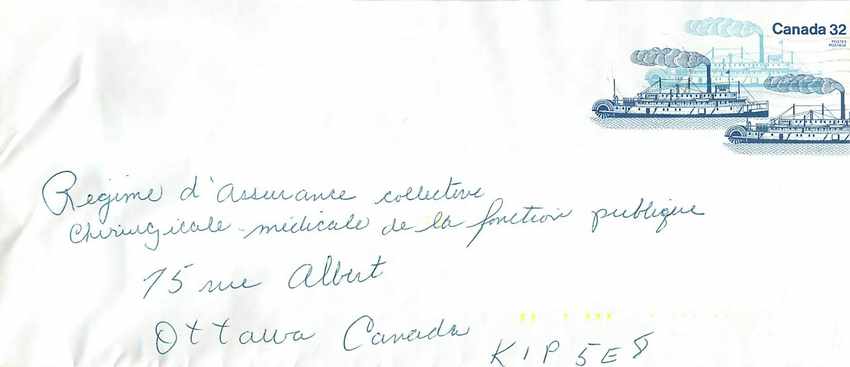 Canada 32
POSTES
POSTAGE
Régime d'assurance collective
Chirurgicale-médicale de la fonction publique
75 rue Albert
Ottawa Canada
K1P 5E8